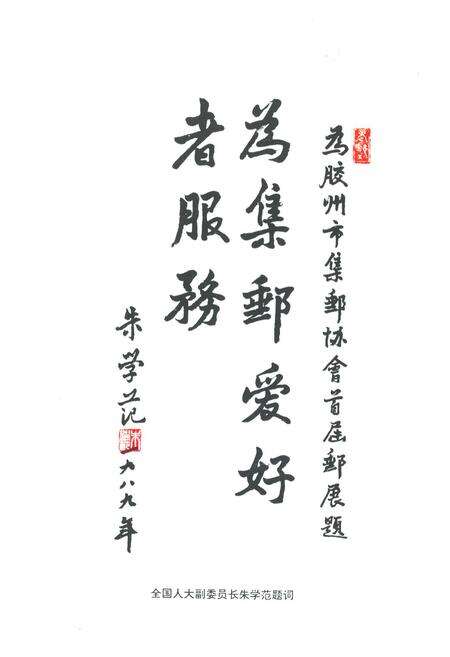 为胶州市集郵协會首届郵展题
為集郵爱好
者服務
朱学范
一九八九年
全国人大副委员长朱学范题词